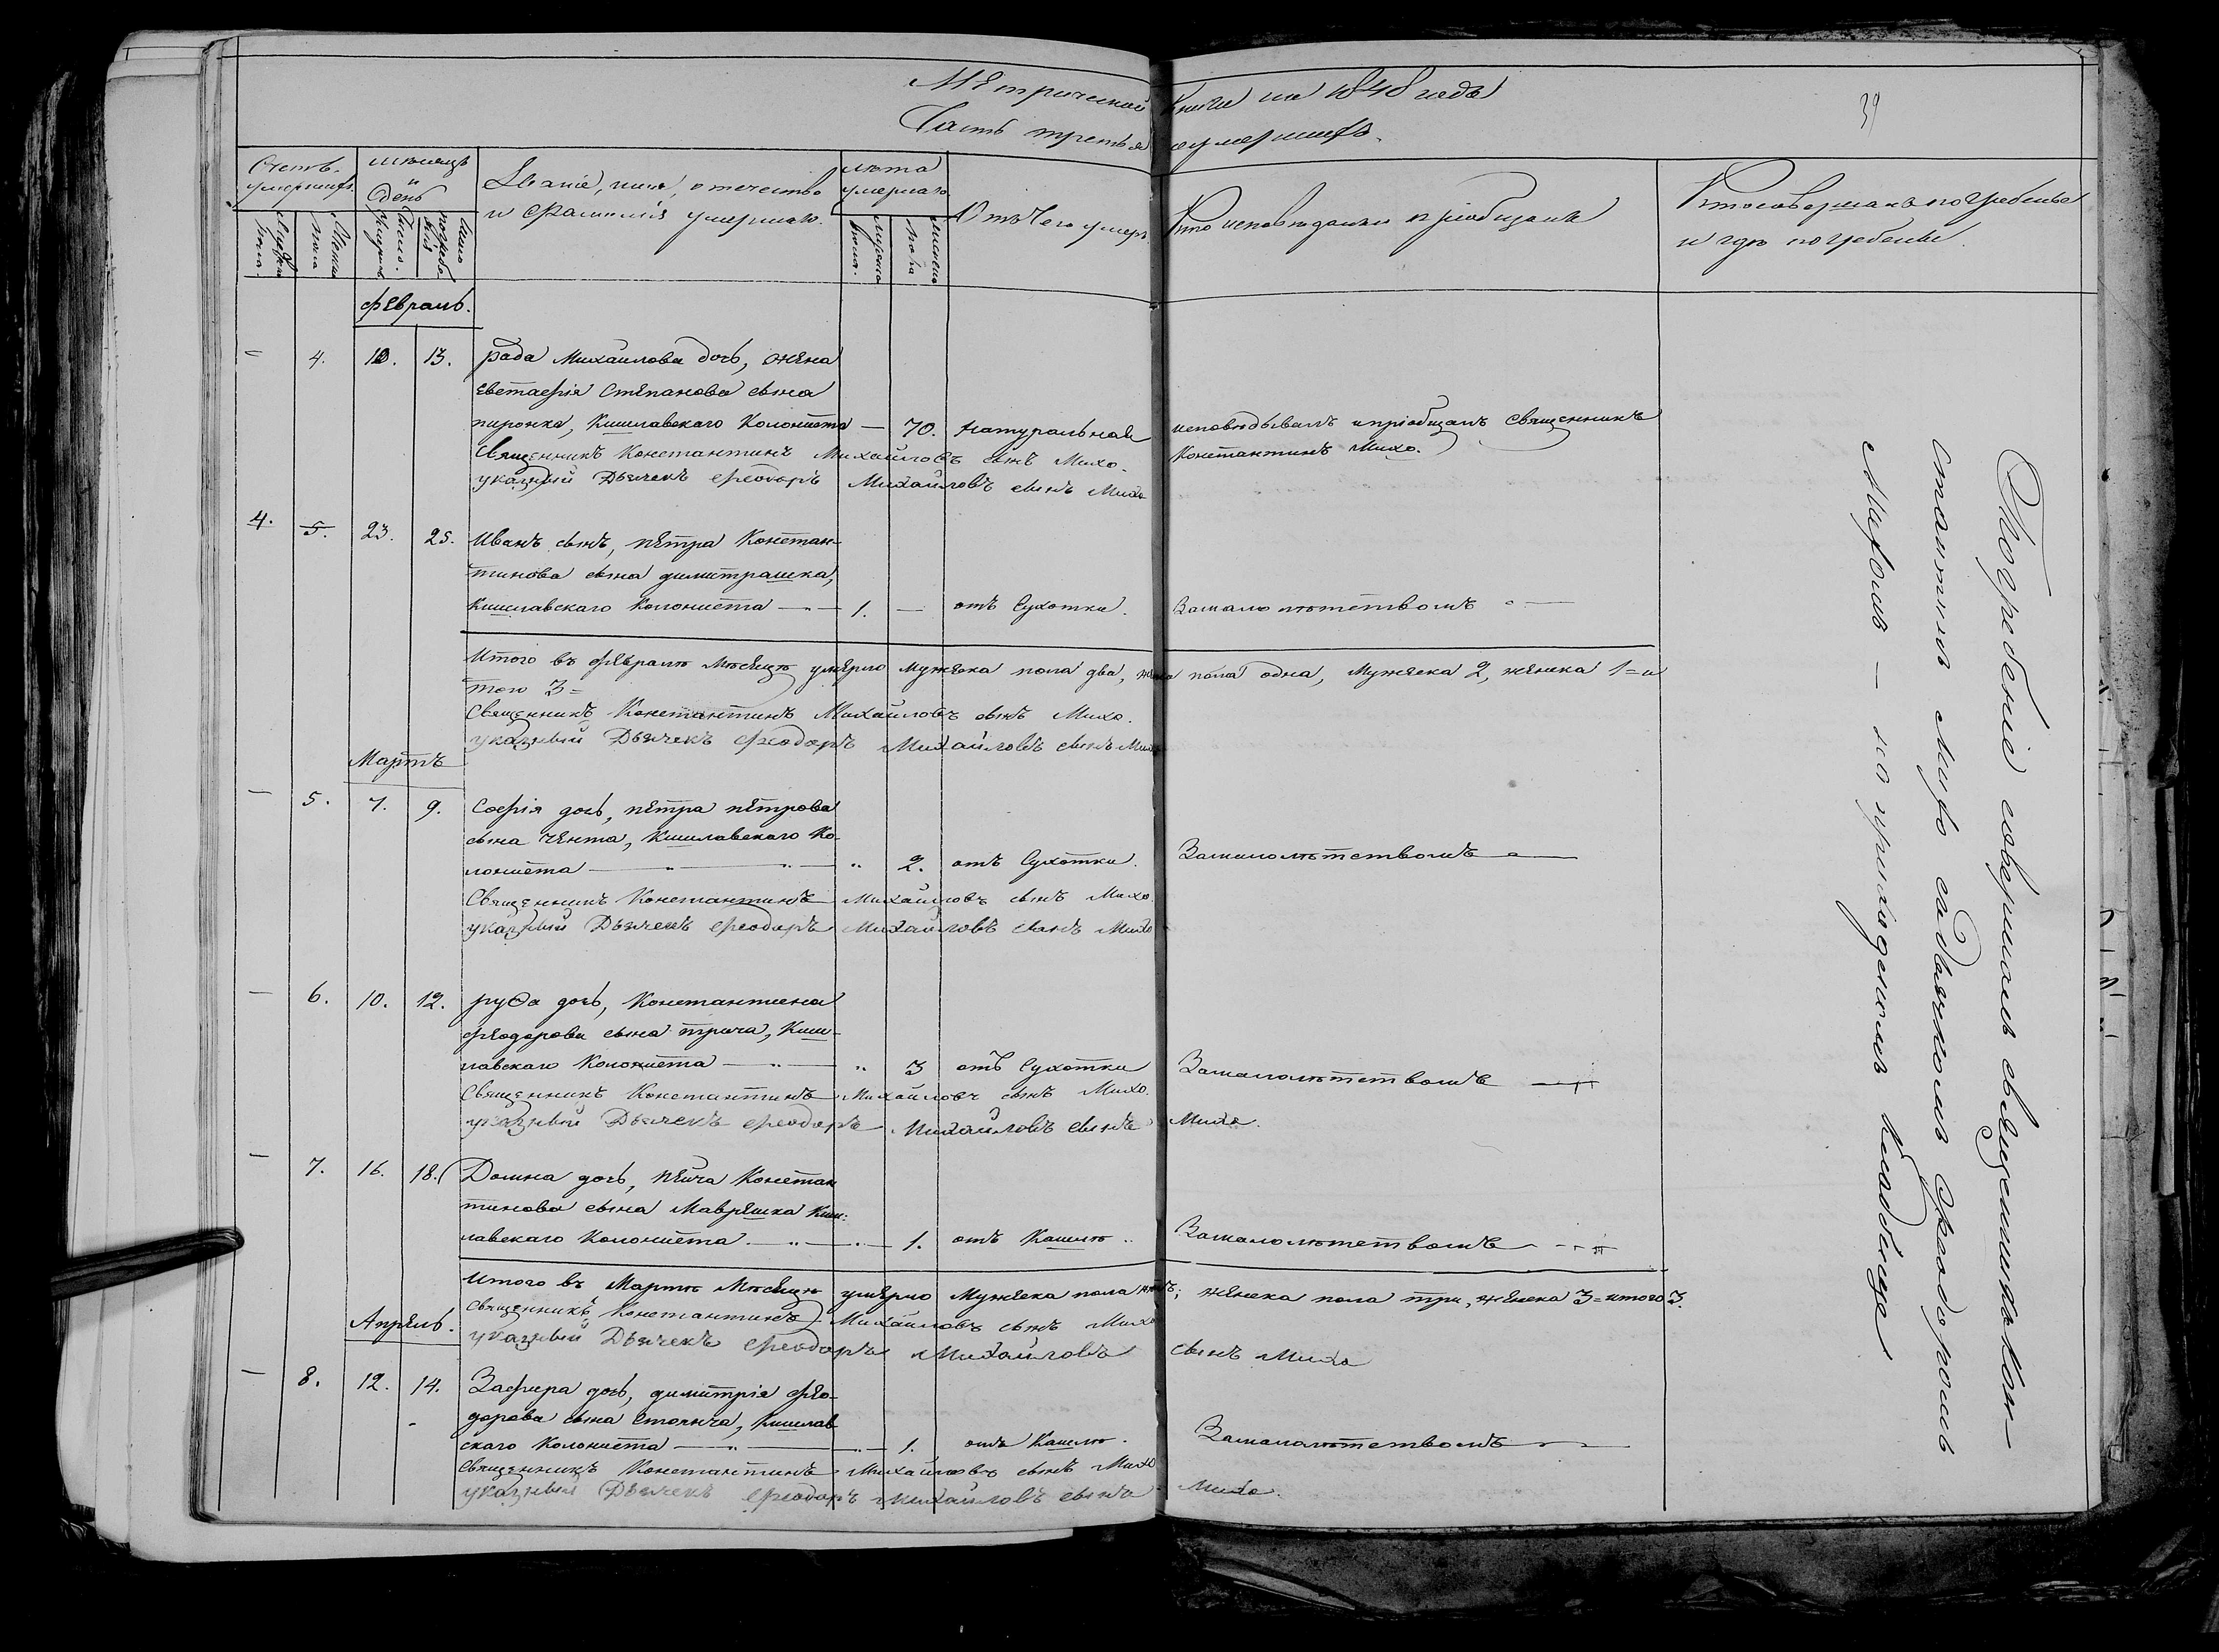 Метрической Книги на 1848 года
Часть третья о умершихъ.
34
Счетъ умершихъ.
Мужеска пола.
Женска пола
мѣсяцъ и День
число. умертв.
число погребения
Званіе, имя, отечество
и фамилія умершаго.
лѣта умершаго
мужеска пола.
женска пола
Отъ Чего умеръ.
Кто исповѣдалъ и пріобщалъ
Кто совершалъ погребеніе
и гдѣ погребены.
Февраль.
— 4. 10. 13. рада Михаилова дочь, жена
Евстафія Степанова сына
пиронка, Кишлавскаго Колониста — 70. натуральная исповѣдывалъ и пріобщалъ Священникъ
Константинъ Михо.
Священникъ Константинъ Михайловъ сынъ Михо.
указный Дьячекъ Феодоръ Михайловъ сынъ Михо
4. 5. 23. 25. Иванъ сынъ, Петра Констан-
тинова сына димитрашка,
Кишлавскаго Колониста — 1. — отъ Сухотки. За малолѣтствомъ —
Итого въ февралѣ Мѣсяцѣ умерло мужеска пола два, женска пола одна, Мужеска 2, женска 1 = и
того 3 =
Священникъ Константинъ Михайловъ сынъ Михо.
указный Дьячекъ Феодоръ Михайловъ сынъ Михо
Мартъ
— 5. 7. 9. Софія дочь, Петра Петрова
сына Чента, Кишлавскаго Ко-
лониста — " 2. отъ Сухотки. За малолѣтствомъ —
Священникъ Константинъ Михайловъ сынъ Михо.
указный Дьячекъ Феодоръ Михайловъ сынъ Михо
— 6. 10. 12. руса дочь, Константина
Феодорова сына трича, Киш-
лавскаго Колониста — " 3 отъ Сухотки За малолѣтствомъ —
Священникъ Константинъ Михайловъ сынъ Михо.
указный Дьячекъ Феодоръ Михайловъ сынъ Михо.
— 7. 16. 18. Домна дочь, Нейча Констан
тинова сына Маврешка Киш:
лавскаго Колониста — 1. отъ Кашлю За малолѣтствомъ —
Итого въ Мартѣ Мѣсяцѣ умерло Мужеска пола нѣтъ; женска пола три, женска 3 = итого 3.
Священникъ Константинъ Михайловъ сынъ Михо
указный Дьячекъ Феодоръ Михайловъ сынъ Михо
Апрель.
— 8. 12. 14. Зафира дочь, димитрія Фео-
дорова сына Стоянча, Кишлав
скаго Колониста — 1. отъ Кашлю. За малолѣтствомъ —
Священникъ Константинъ Михайловъ сынъ Михо
указный Дьячекъ Феодоръ Михайловъ сынъ Михо.
Погребеніе совершалъ священникъ Кон-
стантинъ Михо съ дьячкомъ Феодоромъ
Михомъ — на приходскомъ кладбище